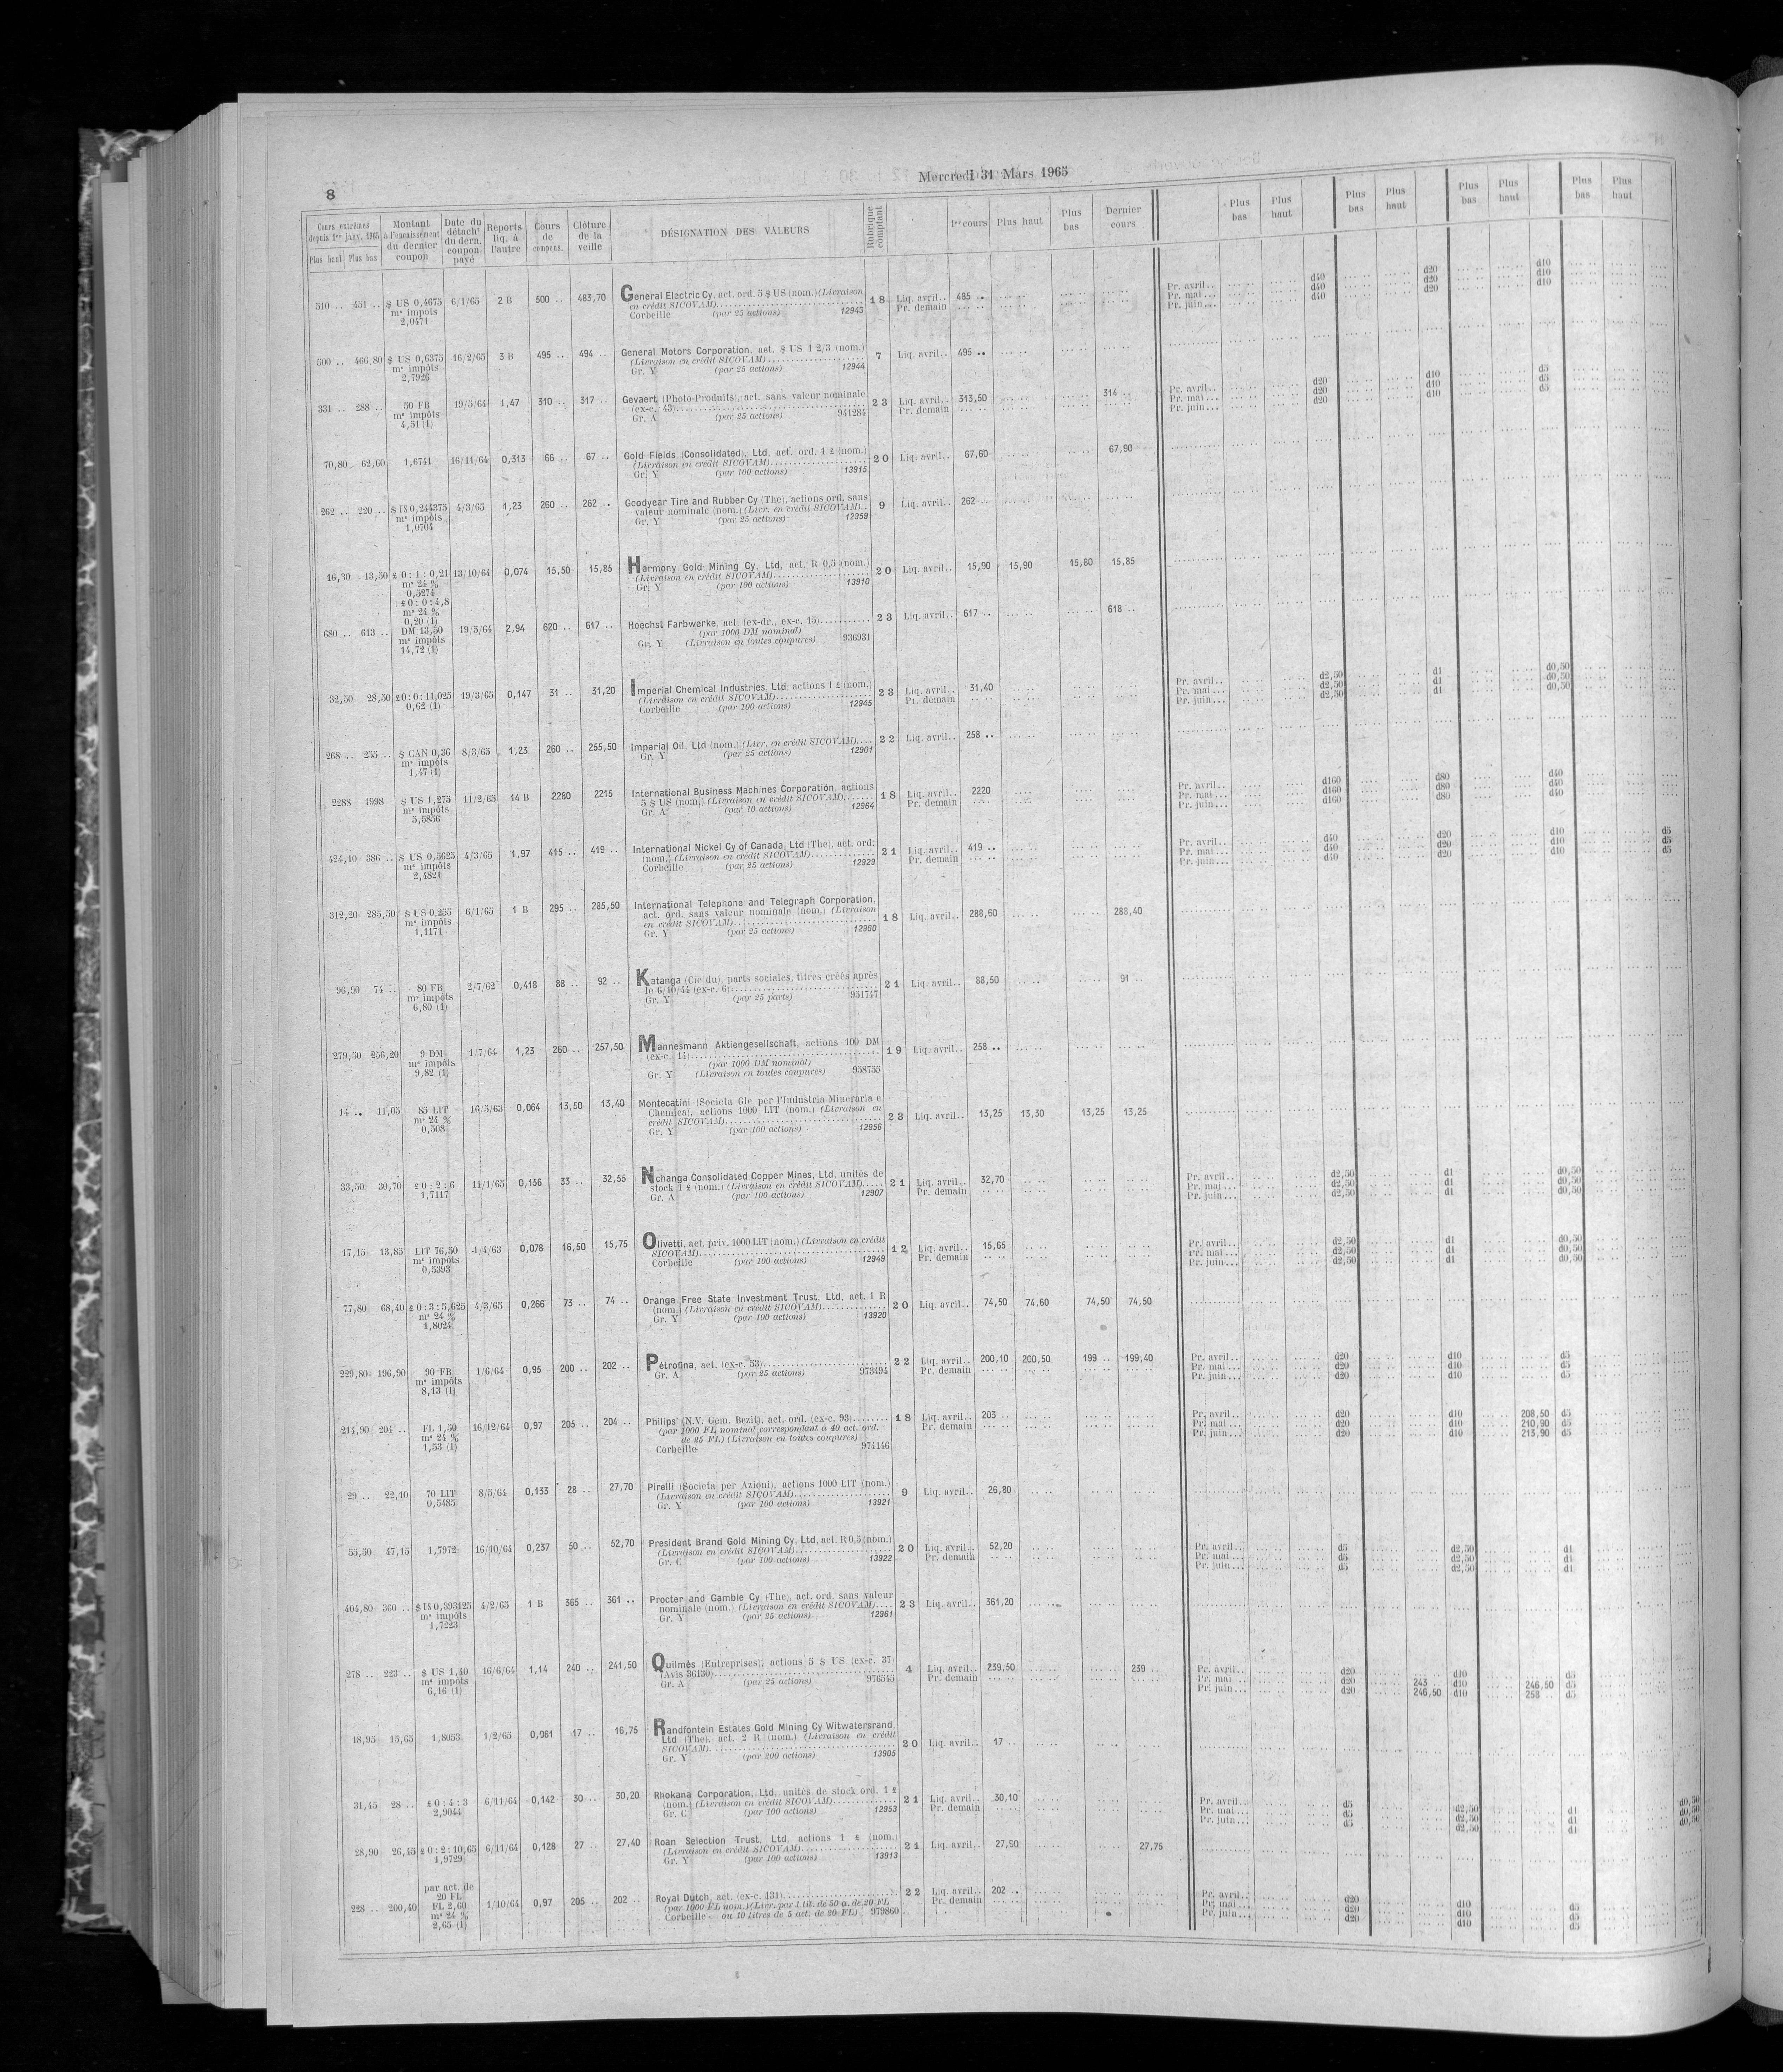 8
Mercredi 31 Mars 1965
Cours extrêmes depuis 1er janv. 1965 Plus haut Plus bas
Montant à l'encaissement du dernier coupon
Date du détacht du dern. coupon payé
Reports liq. à l'autre
Cours de compens.
Clôture de la veille
DÉSIGNATION DES VALEURS
Rubrique comptant
1er cours Plus haut Plus bas Dernier cours
Plus bas Plus haut Plus bas Plus haut Plus bas Plus haut Plus bas Plus haut
510 .. 451 .. $ US 0,4675 6/1/65 2 B 500 .. 483,70 General Electric Cy, act. ord. 5 $ US (nom.) (Livraison
en crédit SICOVAM) 18 Liq. avril.. 485 .. Pr. avril.. d40 d20 d10
ms impôts Corbeille (par 25 actions) 12943 Pr. demain Pr. mai... d40 d20 d10
2,0471 Pr. juin... d40 d20 d10
500 .. 466,80 $ US 0,6375 16/2/65 3 B 495 .. 494 .. General Motors Corporation, act. $ US 1 2/3 (nom.)
ms impôts (Livraison en crédit SICOVAM) 7 Liq. avril.. 495 ..
2,7926 Gr. Y (par 25 actions) 12944
331 .. 288 .. 50 FB 19/5/64 1,47 310 .. 317 .. Gevaert (Photo-Produits), act. sans valeur nominale
ms impôts (ex-c. 43) 23 Liq. avril.. 313,50 314 .. Pr. avril.. d20 d10 d5
4,51 (1) Gr. A (par 25 actions) 941284 Pr. demain Pr. mai... d20 d10 d5
Pr. juin... d20 d10 d5
70,80 62,60 1,6741 16/11/64 0,313 66 .. 67 .. Gold Fields (Consolidated), Ltd, act. ord. 1 £ (nom.)
(Livraison en crédit SICOVAM) 20 Liq. avril.. 67,60 67,90
Gr. Y (par 100 actions) 13915
262 .. 220 .. $ US 0,244375 4/3/65 1,23 260 .. 262 .. Goodyear Tire and Rubber Cy (The), actions ord. sans
ms impôts valeur nominale (nom.) (Livr. en crédit SICOVAM).. 9 Liq. avril.. 262 ..
1,0704 Gr. Y (par 25 actions) 12959
16,30 13,50 £ 0 : 1 : 0,21 13/10/64 0,074 15,50 15,85 Harmony Gold Mining Cy, Ltd, act. R 0,5 (nom.)
ms 24 % (Livraison en crédit SICOVAM) 20 Liq. avril.. 15,90 15,90 15,80 15,85
0,5274 Gr. Y (par 100 actions) 13910
+ £ 0 : 0 : 4,8
ms 24 %
0,20 (1)
680 .. 613 .. DM 13,50 19/5/64 2,94 620 .. 617 .. Hoechst Farbwerke, act. (ex-dr., ex-c. 15) 23 Liq. avril.. 617 .. 618 ..
ms impôts (par 1000 DM nominal)
14,72 (1) Gr. Y (Livraison en toutes coupures) 936931
32,50 28,50 £ 0 : 0 : 11,025 19/3/65 0,147 31 .. 31,20 Imperial Chemical Industries, Ltd, actions 1 £ (nom.)
0,62 (1) (Livraison en crédit SICOVAM) 23 Liq. avril.. 31,40 Pr. avril.. d2,50 d1 d0,50
Corbeille (par 100 actions) 12945 Pr. demain Pr. mai... d2,50 d1 d0,50
Pr. juin... d2,50 d1 d0,50
268 .. 255 .. $ CAN 0,36 8/3/65 1,23 260 .. 255,50 Imperial Oil, Ltd (nom.) (Livr. en crédit SICOVAM).... 22 Liq. avril.. 258 ..
ms impôts Gr. Y (par 25 actions) 12901
1,47 (1)
2288 1998 $ US 1,275 11/2/65 14 B 2280 2215 International Business Machines Corporation, actions
ms impôts 5 $ US (nom.) (Livraison en crédit SICOVAM) 18 Liq. avril.. 2220 Pr. avril.. d160 d80 d40
5,5856 Gr. A (par 10 actions) 12964 Pr. demain Pr. mai... d160 d80 d40
Pr. juin... d160 d80 d40
424,10 386 .. $ US 0,5625 4/3/65 1,97 415 .. 419 .. International Nickel Cy of Canada, Ltd (The), act. ord.
ms impôts (nom.) (Livraison en crédit SICOVAM) 21 Liq. avril.. 419 .. Pr. avril.. d40 d20 d10 d5
2,4821 Corbeille (par 25 actions) 12929 Pr. demain Pr. mai... d40 d20 d10 d5
Pr. juin... d40 d20 d10 d5
312,20 285,50 $ US 0,255 6/1/65 1 B 295 .. 285,50 International Telephone and Telegraph Corporation,
ms impôts act. ord. sans valeur nominale (nom.) (Livraison
1,1171 en crédit SICOVAM) 18 Liq. avril.. 288,60 288,40
Gr. Y (par 25 actions) 12960
96,90 74 .. 80 FB 2/7/62 0,418 88 .. 92 .. Katanga (Cie du), parts sociales, titres créés après
ms impôts le 6/10/44 (ex-c. 6) 21 Liq. avril.. 88,50 91 ..
6,80 (1) Gr. Y (par 25 parts) 951747
279,50 256,20 9 DM 1/7/64 1,23 260 .. 257,50 Mannesmann Aktiengesellschaft, actions 100 DM
ms impôts (ex-c. 14) 19 Liq. avril.. 258 ..
9,82 (1) (par 1000 DM nominal)
Gr. Y (Livraison en toutes coupures) 958755
14 .. 11,05 85 LIT 16/5/63 0,064 13,50 13,40 Montecatini (Societa Gle per l'Industria Mineraria e
ms 24 % Chemica), actions 1000 LIT (nom.) (Livraison en
0,508 crédit SICOVAM) 23 Liq. avril.. 13,25 13,30 13,25 13,25
Gr. Y (par 100 actions) 12956
33,50 30,70 £ 0 : 2 : 6 11/1/65 0,156 33 .. 32,55 Nchanga Consolidated Copper Mines, Ltd, unités de
1,7117 stock 1 £ (nom.) (Livraison en crédit SICOVAM)..... 21 Liq. avril.. 32,70 Pr. avril.. d2,50 d1 d0,50
Gr. A (par 100 actions) 12907 Pr. demain Pr. mai... d2,50 d1 d0,50
Pr. juin... d2,50 d1 d0,50
17,15 13,85 LIT 76,50 4/4/63 0,078 16,50 15,75 Olivetti, act. priv. 1000 LIT (nom.) (Livraison en crédit
ms impôts SICOVAM) 12 Liq. avril.. 15,65 Pr. avril.. d2,50 d1 d0,50
0,5393 Corbeille (par 100 actions) 12949 Pr. demain Pr. mai... d2,50 d1 d0,50
Pr. juin... d2,50 d1 d0,50
77,80 68,40 £ 0 : 3 : 5,625 4/3/65 0,266 73 .. 74 .. Orange Free State Investment Trust, Ltd, act. 1 R
ms 24 % (nom.) (Livraison en crédit SICOVAM) 20 Liq. avril.. 74,50 74,60 74,50 74,50
1,8024 Gr. Y (par 100 actions) 13920
229,80 196,90 90 FB 1/6/64 0,95 200 .. 202 .. Pétrofina, act. (ex-c. 53) 22 Liq. avril.. 200,10 200,50 199 .. 199,40 Pr. avril.. d20 d10 d5
ms impôts Gr. A (par 25 actions) 973494 Pr. demain Pr. mai... d20 d10 d5
8,13 (1) Pr. juin... d20 d10 d5
214,90 204 .. FL 1,50 16/12/64 0,97 205 .. 204 .. Philips' (N.V. Gem. Bezit), act. ord. (ex-c. 93) 18 Liq. avril.. 203 .. Pr. avril.. d20 d10 208,50 d5
ms 24 % (par 1000 FL nominal correspondant à 40 act. ord. Pr. demain Pr. mai... d20 d10 210,90 d5
1,53 (1) de 25 FL) (Livraison en toutes coupures) Pr. juin... d20 d10 213,90 d5
Corbeille 974146
29 .. 22,10 70 LIT 8/5/64 0,133 28 .. 27,70 Pirelli (Societa per Azioni), actions 1000 LIT (nom.)
0,5485 (Livraison en crédit SICOVAM) 9 Liq. avril.. 26,80
Gr. Y (par 100 actions) 13921
55,50 47,15 1,7972 16/10/64 0,237 50 .. 52,70 President Brand Gold Mining Cy, Ltd, act. R 0,5 (nom.)
(Livraison en crédit SICOVAM) 20 Liq. avril.. 52,20 Pr. avril.. d5 d2,50 d1
Gr. C (par 100 actions) 13922 Pr. demain Pr. mai... d5 d2,50 d1
Pr. juin... d5 d2,50 d1
404,80 360 .. $ US 0,393125 4/2/65 1 B 365 .. 361 .. Procter and Gamble Cy (The), act. ord. sans valeur
ms impôts nominale (nom.) (Livraison en crédit SICOVAM).... 23 Liq. avril.. 361,20
1,7223 Gr. Y (par 25 actions) 12961
278 .. 223 .. $ US 1,40 16/6/64 1,14 240 .. 241,50 Quilmès (Entreprises), actions 5 $ US (ex-c. 37)
ms impôts (Avis 36130) 4 Liq. avril.. 239,50 239 .. Pr. avril.. d20 d10 d5
6,16 (1) Gr. A (par 25 actions) 976545 Pr. demain Pr. mai ... d20 243 .. d10 246,50 d5
Pr. juin... d20 246,50 d10 258 .. d5
18,95 15,65 1,8053 1/2/65 0,081 17 .. 16,75 Randfontein Estates Gold Mining Cy Witwatersrand,
Ltd (The), act. 2 R (nom.) (Livraison en crédit
SICOVAM) 20 Liq. avril.. 17 ..
Gr. Y (par 200 actions) 13905
31,45 28 .. £ 0 : 4 : 3 6/11/64 0,142 30 .. 30,20 Rhokana Corporation, Ltd, unités de stock ord. 1 £
2,9044 (nom.) (Livraison en crédit SICOVAM) 21 Liq. avril.. 30,10 Pr. avril.. d5 d2,50 d1 d0,50
Gr. C (par 100 actions) 12953 Pr. demain Pr. mai... d5 d2,50 d1 d0,50
Pr. juin... d5 d2,50 d1 d0,50
28,90 26,45 £ 0 : 2 : 10,65 6/11/64 0,128 27 .. 27,40 Roan Selection Trust, Ltd, actions 1 £ (nom.)
1,9729 (Livraison en crédit SICOVAM) 21 Liq. avril.. 27,50 27,75
Gr. Y (par 100 actions) 13913
par act. de
20 FL
228 .. 200,40 FL 2,60 1/10/64 0,97 205 .. 202 .. Royal Dutch, act. (ex-c. 131) 22 Liq. avril.. 202 .. Pr. avril.. d20 d10 d5
ms 24 % (par 1000 FL nom.) (Livr. par 1 tit. de 50 a. de 20 FL Pr. demain Pr. mai... d20 d10 d5
2,65 (1) Corbeille ou 10 titres de 5 act. de 20 FL) 979860 Pr. juin... d20 d10 d5